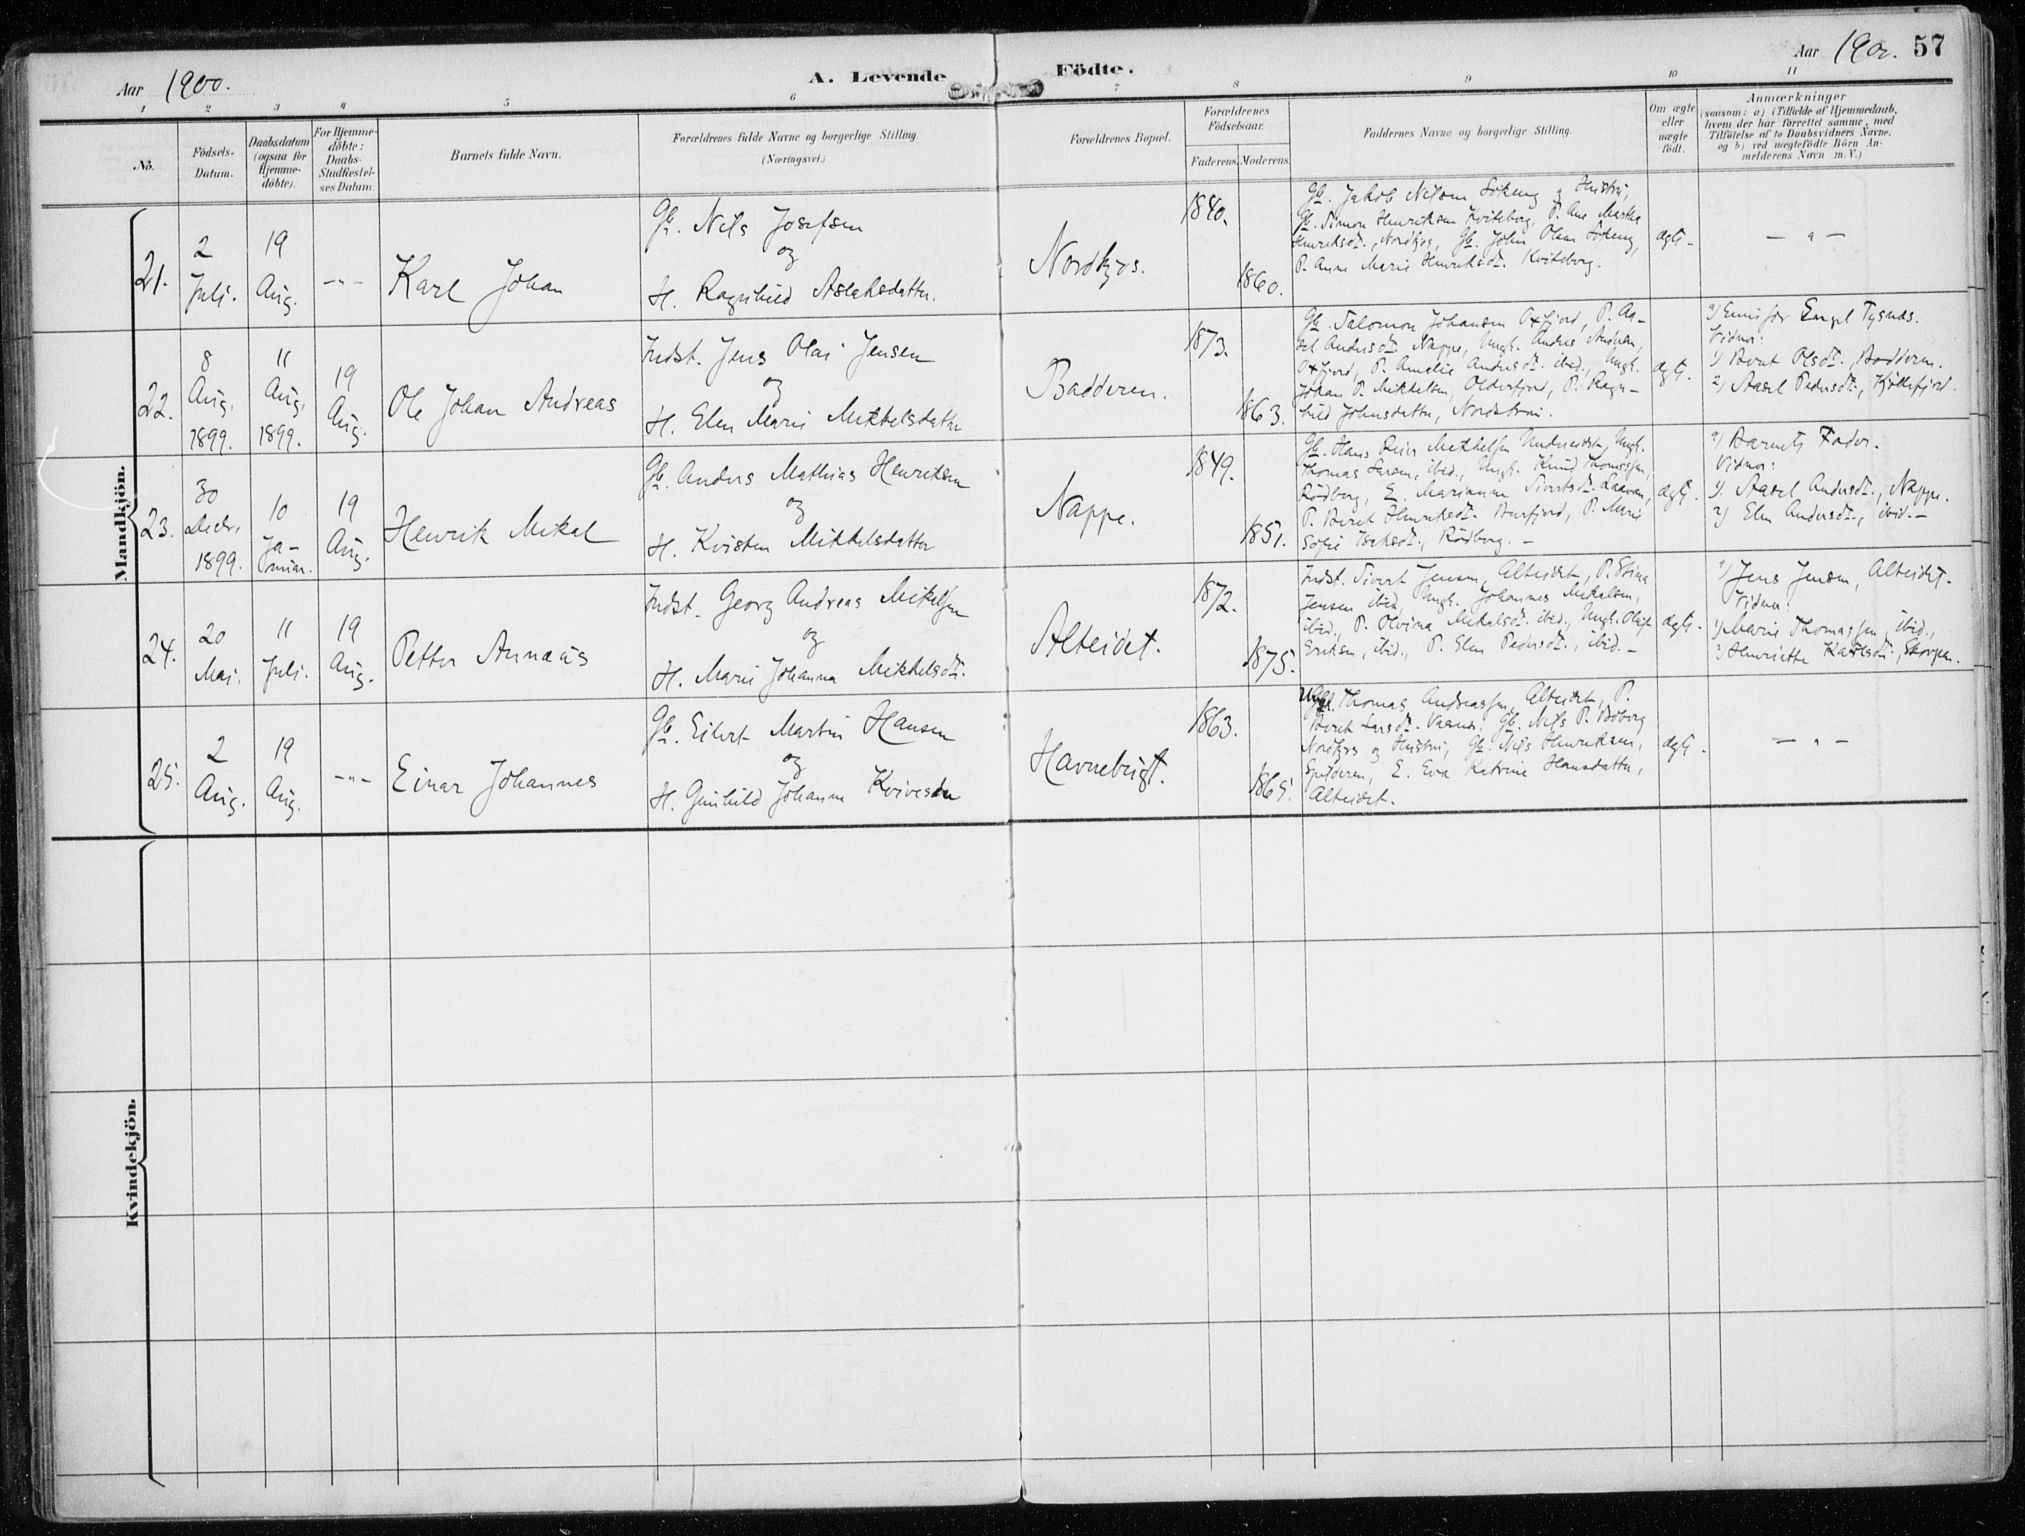 Aar 1900.
A. Levende Födte.
Aar 1900. 57
1 2 3 4 5 6 7 8 9 10 11
No.
Födsels-
Datum.
Daabsdatum
(ogsaa for
Hjemme-
döbte).
For Hjemme-
döbte:
Daabs-
Stadfestel-
ses Datum.
Barnets fulde Navn.
Forældrenes fulde Navne og borgerlige Stilling.
(Næringsvei.)
Forældrenes Bopæl.
Forældrenes
Födselsaar.
Faderens. Moderens.
Faddernes Navne og borgerlige Stilling.
Om ægte
eller
uægte
født.
Anmærkninger
(saasom: a) i Tilfælde af Hjemmedaab,
hvem der har forrettet samme, med
Tilföielse af to Daabsvidners Navne.
og b) ved uægtefödte Börn An-
melderens Navn m. V.)
Mandkjön.
21.
2
Juli.
19
Aug.
-"-
Karl Johan
Gb. Nils Josefsen
og
H. Ragnhild Aslaksdatter.
Nordkjos.
1840.
1860.
Gb. Jakob Nilsen Sökeng og Hustru,
Gb. Simon Henriksen Kviteberg, P. Ane Marthe
Henriksdt., Nordkjos, Gb. John Olsen Sökeng,
P. Anne Marie Henriksdt. Kviteberg.
ægte.
— " —
22.
8
Aug.
1899.
11
Aug.
1899.
19
Aug.
Ole Johan Andreas
Indst. Jens Olai Jensen
og
H. Elen Marie Mikkelsdatter
Badderen.
1873.
1863.
Gb. Salomon Johansen Oxfjord, P. Aa-
sel Andersdt. Nappe, Ungk. Anders
Oxfjord, P. Amelie Andersdt. ibid., Ungk.
Johan P. Mikkelsen, Olderfjord, P. Ragn-
hild Johnsdatter,
ægte.
a) Engel Tysnæs.
Vidner:
1) Berit Olsdt., Badderen.
2) Aasel Pedersdt.,
23.
30
Decbr.
1899.
10
Ja-
nuar.
19
Aug.
Henrik Mikal
Gb. Anders Mathias Henriksen
og
H. Kristen Mikkelsdatter
Nappe.
1849.
1851.
Gb. Hans Peder Mikkelsen Ungk.
Thomas Larsen, ibid., Ungk. Knud Thomassen,
Rödberg, E. Marianne Sivertsdt.
P. Berit Henriksdt. Burfjord, P. Marie
Sofie Isaksdt., Rödberg. —
ægte.
a) Barnets Fader.
Vidner:
1) Aasel Andersdt., Nappe.
2) Elen Andersdt., ibid. —
24.
20
Mai.
11
Juli.
19
Aug.
Petter Annæus
Indst. Georg Andreas Mikelsen
og
H. Marie Johanna Mikkelsdt.
Alteidet.
1872.
1875.
Indst. Sivert Jensen, Alteidet, P. Stina
Jensen ibid., Ungk. Johannes Mikalsen,
ibid., P. Olvina Mikalsdt. ibid., Ungk. Olaf
Eriksen, ibid., P. Elen Pedersdt., ibid. —
ægte.
a) Jens Jensen, Alteidet.
Vidner:
1) Marie Thomassen, ibid.,
2) Henriette Karlsdt., Skorpen.
25.
2
Aug.
19
Aug.
-"-
Einar Johannes
Gb. Eilert Martin Hansen
og
H. Gunhild Johanne
Havnebugt.
1863.
1865.
Thomas Andreassen, Alteidet, P.
Berit Larsdt. Gb. Nils P.
Nordkjos og Hustru, Gb. Nils Henriksen,
Spilderen, E. Eva Katrine Hansdatter,
Alteidet.
ægte.
— " —
Kvindekjön.